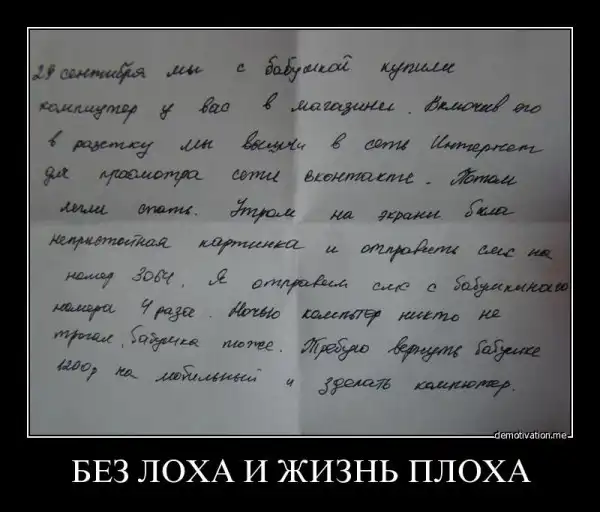 29 сентября мы с бабушкой купили
компиутер у вас в магазине. Включив его
в разетку мы вышли в сеть Интернет
для просмотра сети вконтакте. Потом
легли спать. Утром на экране была
непристойная картинка и отправить смс на
номер 3064. Я отправил смс с бабушкиного
номера 4 раза. Ночью компьтер никто не
трогал, бабушка тоже. Требую вернуть бабушке
1200р на мобильный и зделать компютер.
demotivation.me
БЕЗ ЛОХА И ЖИЗНЬ ПЛОХА